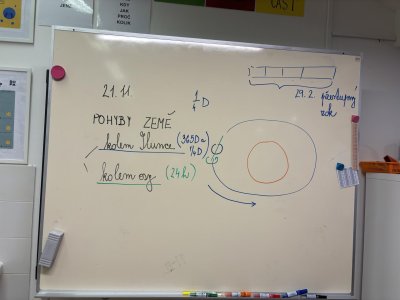 JEN
KDY
JAK
PROČ
KOLIK
ČÁST
21. 11.
1/4 D
29. 2. přestupný
rok
POHYBY ZEMĚ
kolem Slunce (365D a
1/4D)
kolem osy (24h)